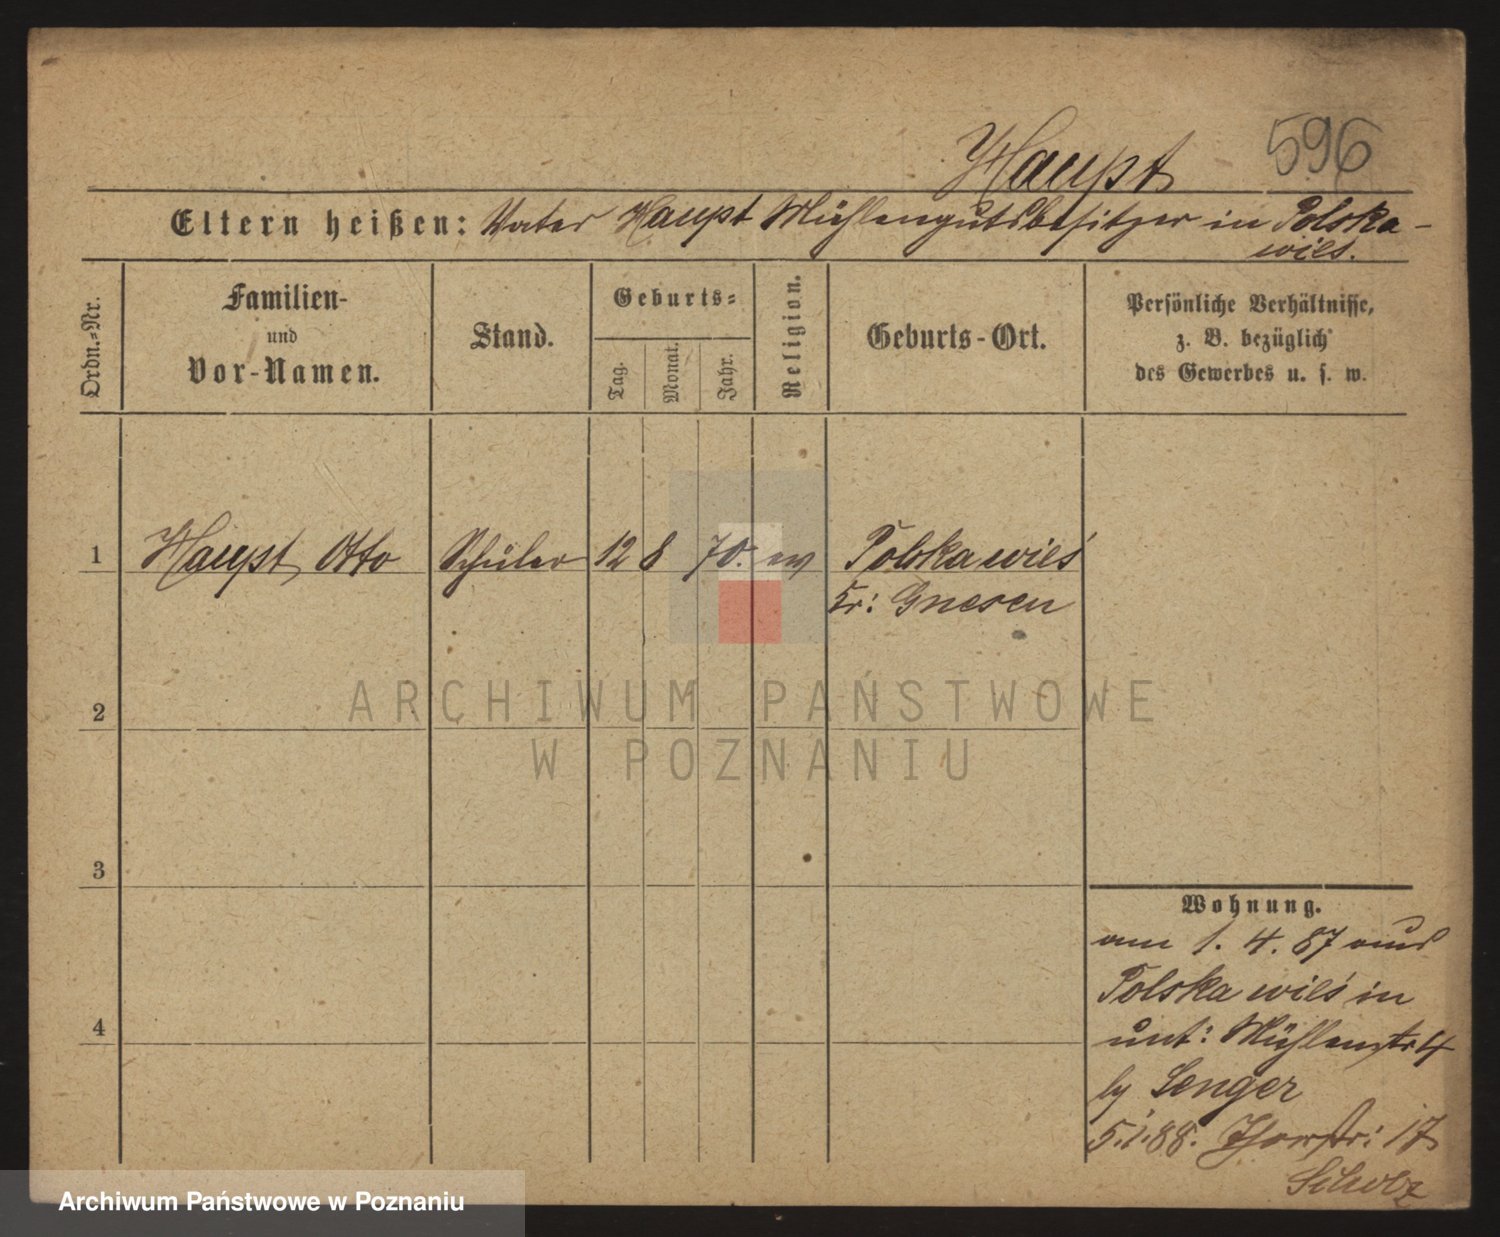 Haupt 596
Eltern heißen: Vater Haupt Mühlengutsbesitzer in Polska-
wies.
Ordn.-Nr.
Familien-
und
Vor-Namen.
Stand.
Geburts-
Tag.
Monat.
Jahr.
Religion.
Geburts-Ort.
Persönliche Verhältnisse,
z. B. bezüglich
des Gewerbes u. s. w.
1 Haupt Otto Schüler 12 8 70. ev Polska wieś
Kr: Gnesen
ARCHIWUM PAŃSTWOWE
W POZNANIU
2
3
4
Wohnung.
am 1. 4. 87 aus
Polska wieś in
unt: Mühlenstr 4
by Senger
5.1.88. 17
Scholz
Archiwum Państwowe w Poznaniu